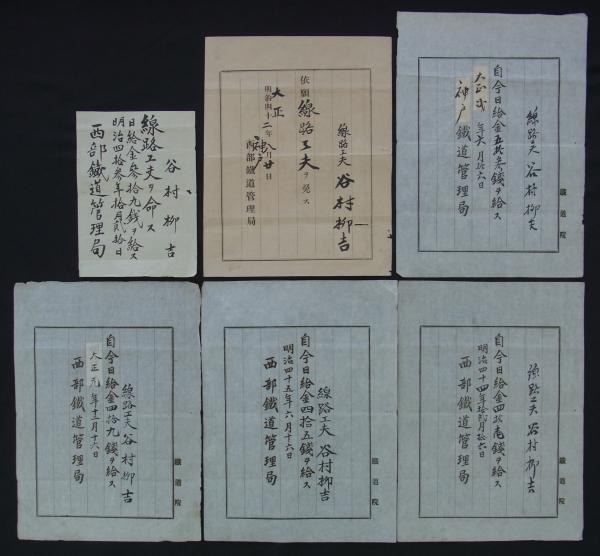 谷村柳吉
線路工夫ヲ命ス
日給金參拾九銭ヲ給ス
明治四拾參年拾月貳拾日
西部鐵道管理局
線路工夫 谷村柳吉
依願線路工夫ヲ免ス
大正
明治四十二年 月廿日
神戸
西部鐵道管理局
鐵道院
線路工夫 谷村柳吉
自今日給金五拾參錢ヲ給ス
大正貳年六月拾六日
神戸鐵道管理局
線路工夫 谷村柳吉
自今日給金四拾九錢ヲ給ス
大正元年十二月十六日
西部鐵道管理局
鐵道院
線路工夫 谷村柳吉
自今日給金四拾五錢ヲ給ス
明治四十五年六月十六日
西部鐵道管理局
鐵道院
線路工夫 谷村柳吉
自今日給金四拾壱錢ヲ給ス
明治四十四年拾貳月拾六日
西部鐵道管理局
鐵道院